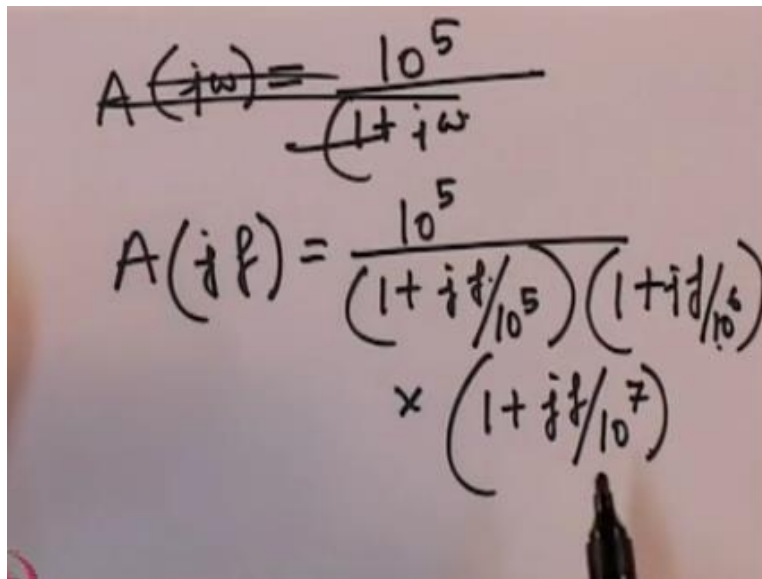 A(jω) = 10^5 / (1 + jω
A(jf) = 10^5 / (1 + jf/10^5)(1 + jf/10^6)
× (1 + jf/10^7)